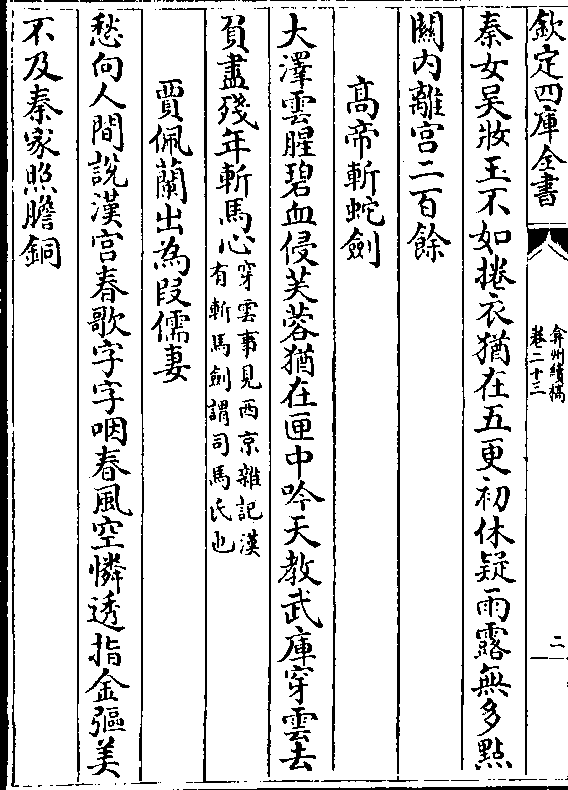 欽定四庫全書
弇州續稿
卷二十三
二
秦女吳妝玉不如捲衣猶在五更初休疑雨露無多點
關内離宮二百餘
高帝斬蛇劍
大澤雲腥碧血侵芙蓉猶在匣中吟天教武庫穿雲去
負盡殘年斬馬心
穿雲事見西京雜記漢
有斬馬劍謂司馬氏也
賈佩蘭出為段儒妻
愁向人間說漢宮春歌字字咽春風空憐透指金彄美
不及秦家照膽銅